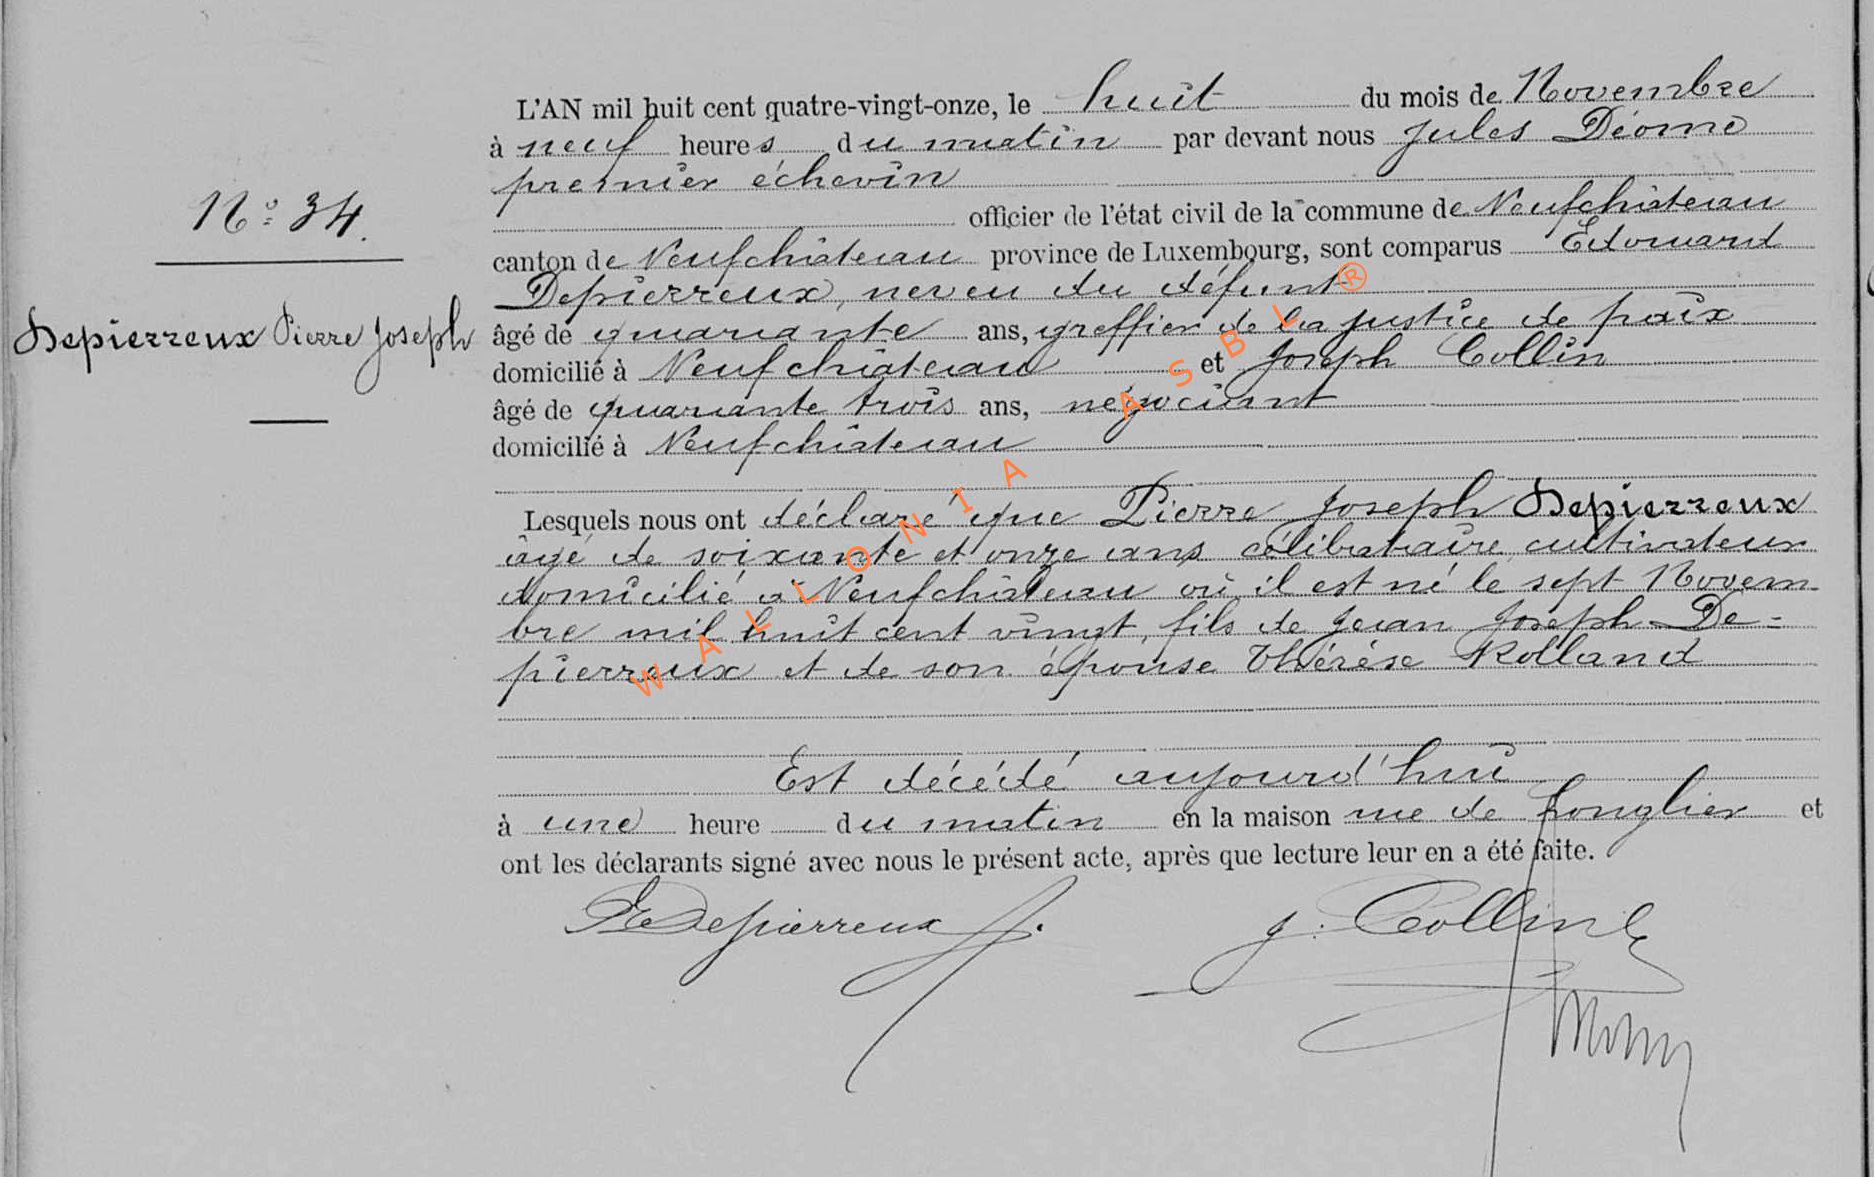 N° 34.
Depierreux Pierre Joseph
L'AN mil huit cent quatre-vingt-onze, le huit du mois de Novembre
à neuf heures du matin par devant nous Jules Déome
premier échevin
officier de l'état civil de la commune de Neufchâteau
canton de Neufchâteau province de Luxembourg, sont comparus Edouard
Depierreux, neveu du défunt
âgé de quarante ans, greffier de la justice de paix
domicilié à Neufchâteau et Joseph Collin
âgé de quarante trois ans, négociant
domicilié à Neufchâteau
Lesquels nous ont déclaré que Pierre Joseph Depierreux
âgé de soixante et onze ans célibataire cultivateur
domicilié à Neufchâteau où il est né le sept Novem-
bre mil huit cent vingt, fils de Jean Joseph De-
pierreux et de son épouse Thérèse Rolland
Est décédé aujourd'hui
à une heure du matin en la maison rue de Longlier et
ont les déclarants signé avec nous le présent acte, après que lecture leur en a été faite.
EDepierreux J. Collin
WALLONIA ASBL®